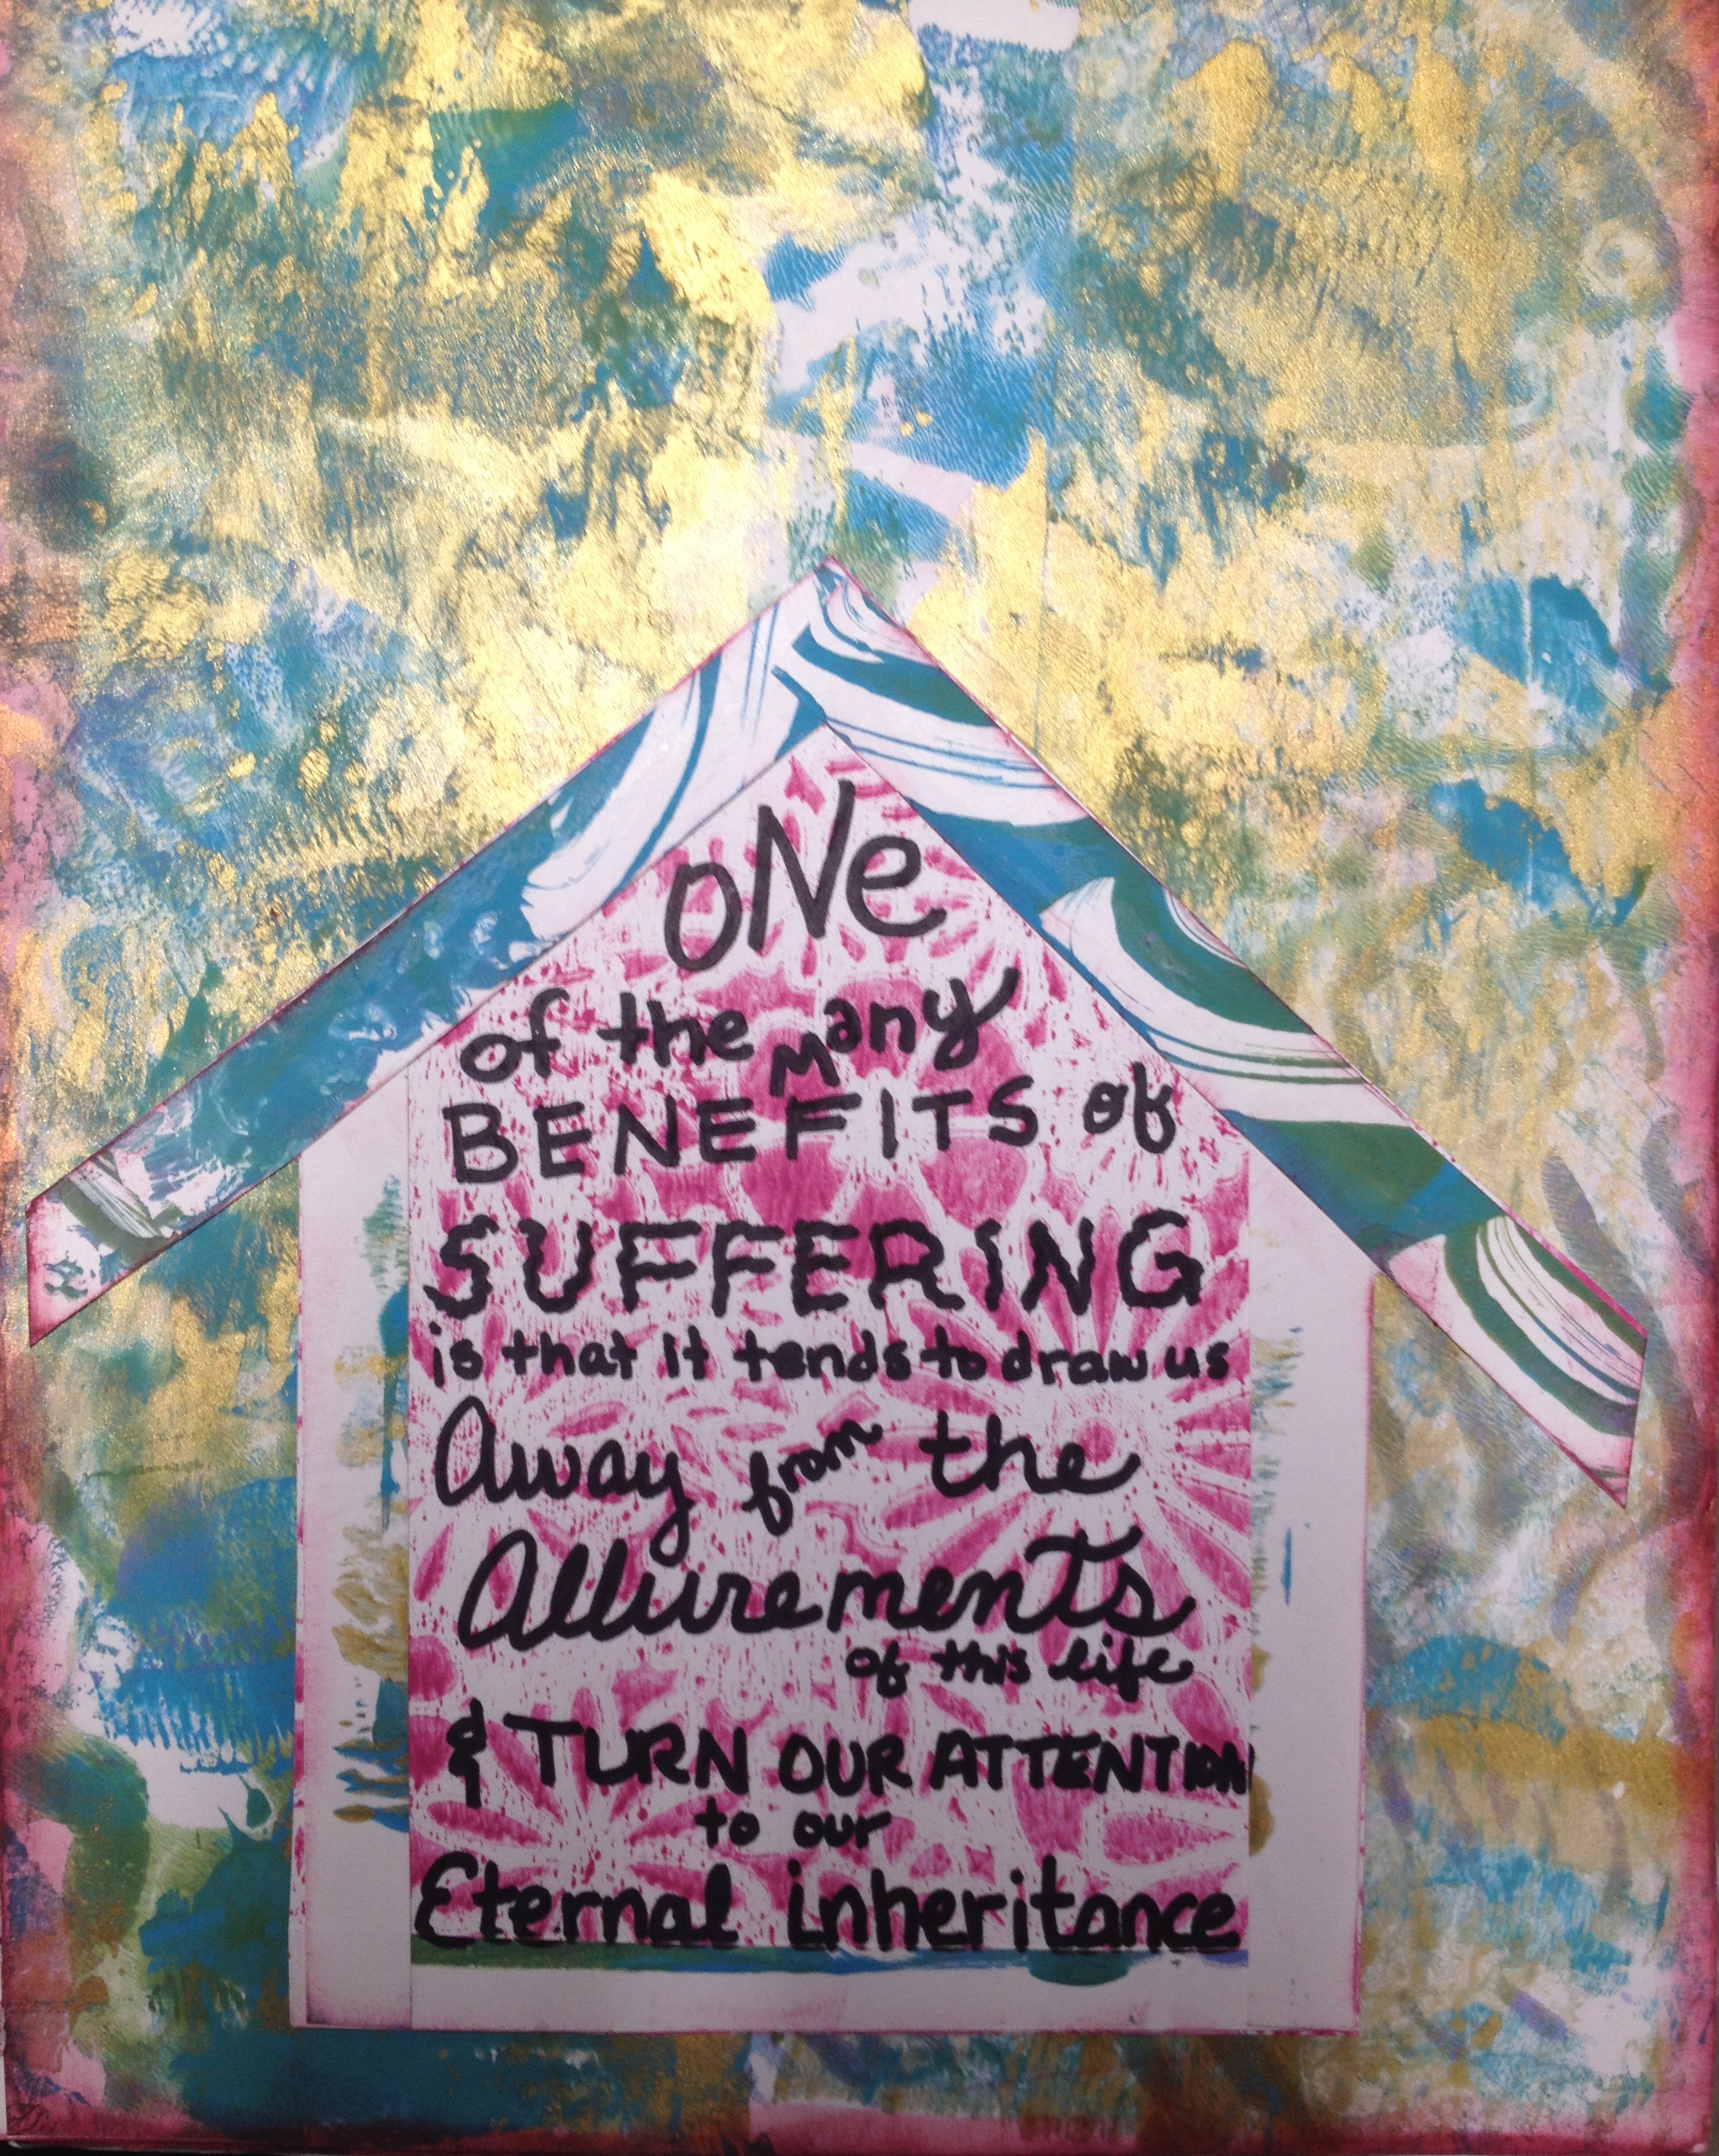 oNe
of the many
BENEFITS of
SUFFERING
is that it tends to draw us
Away from the
Allurements
of this life
& TURN OUR ATTENTION
to our
Eternal inheritance